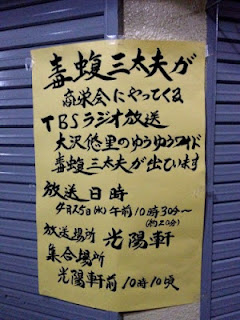 毒蝮三太夫が
商栄会にやってくる
TBSラジオ放送
大沢悠里のゆうゆうワイド
毒蝮三太夫が出ています
放送日時
4月25日(水)午前10時30分〜
(約20分)
放送場所 光陽軒
集合場所
光陽軒前10時10頃